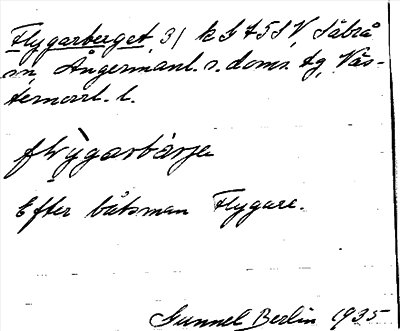 Flygarberget, 31 k S A5SV, Säbrå
sn, Ångermanl. s. doms. tg, Väs-
ternorrl. l.
flygarbärje
Efter båtsman Flygare.
Gunnel Berlin 1935